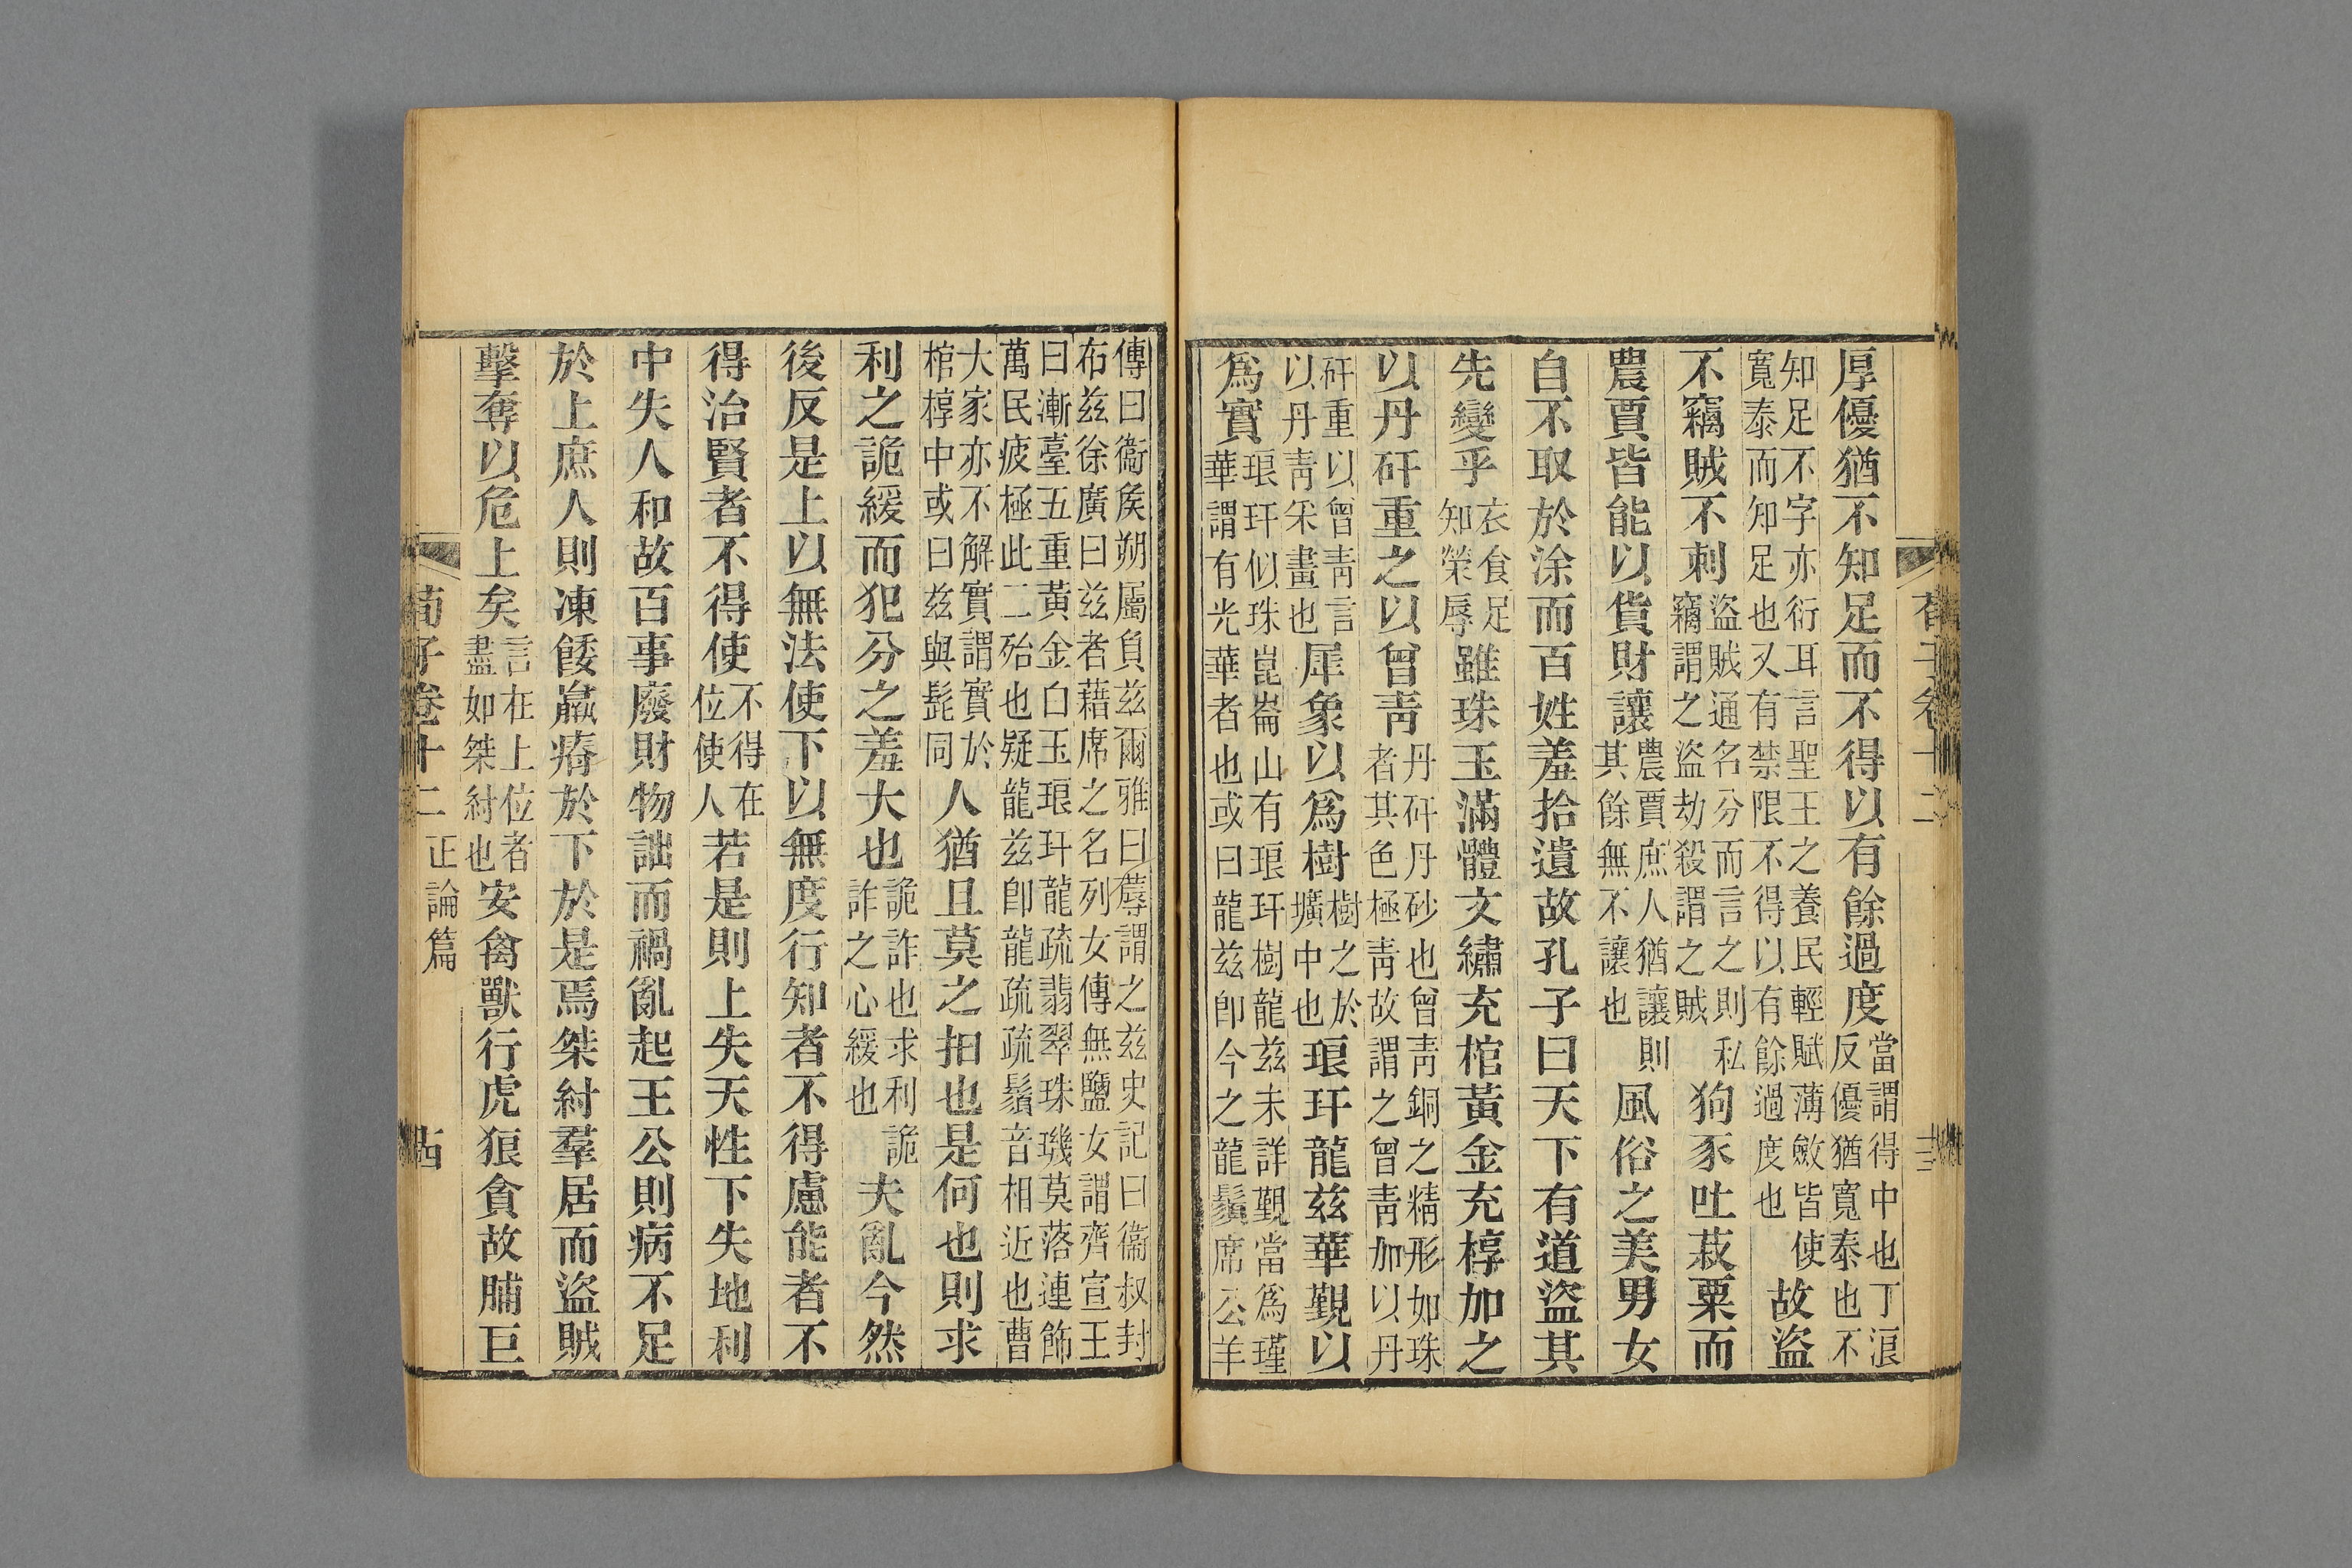 荀子卷十二
厚優猶不知足而不得以有餘過度當謂得中也丁浪反優猶寬泰也不
知足不字亦衍耳言聖王之養民輕賦薄斂皆使寬泰而知足也又有禁限不得以有餘過度也故盜
不竊賊不刺盜賊通名分而言之則私竊謂之盜劫殺謂之賊狗豕吐菽粟而
農賈皆能以貨財讓農賈庶人猶讓則其餘無不讓也風俗之美男女
自不取於涂而百姓羞拾遺故孔子曰天下有道盜其
先變乎衣食足知榮辱雖珠玉滿體文繡充棺黃金充椁加之
以丹矸重之以曾靑丹矸丹砂也曾靑銅之精形如珠者其色極靑故謂之曾靑加以丹
矸重以曾靑言以丹靑采畫也犀象以爲樹樹之於壙中也琅玕龍茲華覲以
爲實琅玕似珠崑崙山有琅玕樹龍茲未詳覲當爲瑾華謂有光華者也或曰龍茲卽今之龍鬚席公羊
傳曰衞矦朔屬負茲爾雅曰蓐謂之茲史記曰衞叔封布茲徐廣曰茲者藉席之名列女傳無鹽女謂齊宣王
曰漸臺五重黃金白玉琅玕龍疏翡翠珠璣莫落連飾萬民疲極此二殆也疑龍茲卽龍疏疏鬚音相近也曹
大家亦不解實謂實於棺椁中或曰茲與髭同人猶且莫之抇也是何也則求
利之詭緩而犯分之羞大也詭詐也求利詭詐之心緩也夫亂今然
後反是上以無法使下以無度行知者不得慮能者不
得治賢者不得使不得在位使人若是則上失天性下失地利
中失人和故百事廢財物詘而禍亂起王公則病不足
於上庶人則凍餧羸瘠於下於是焉桀紂羣居而盜賊
擊奪以危上矣言在上位者盡如桀紂也安禽獸行虎狼貪故脯巨
荀子卷十二 正論篇